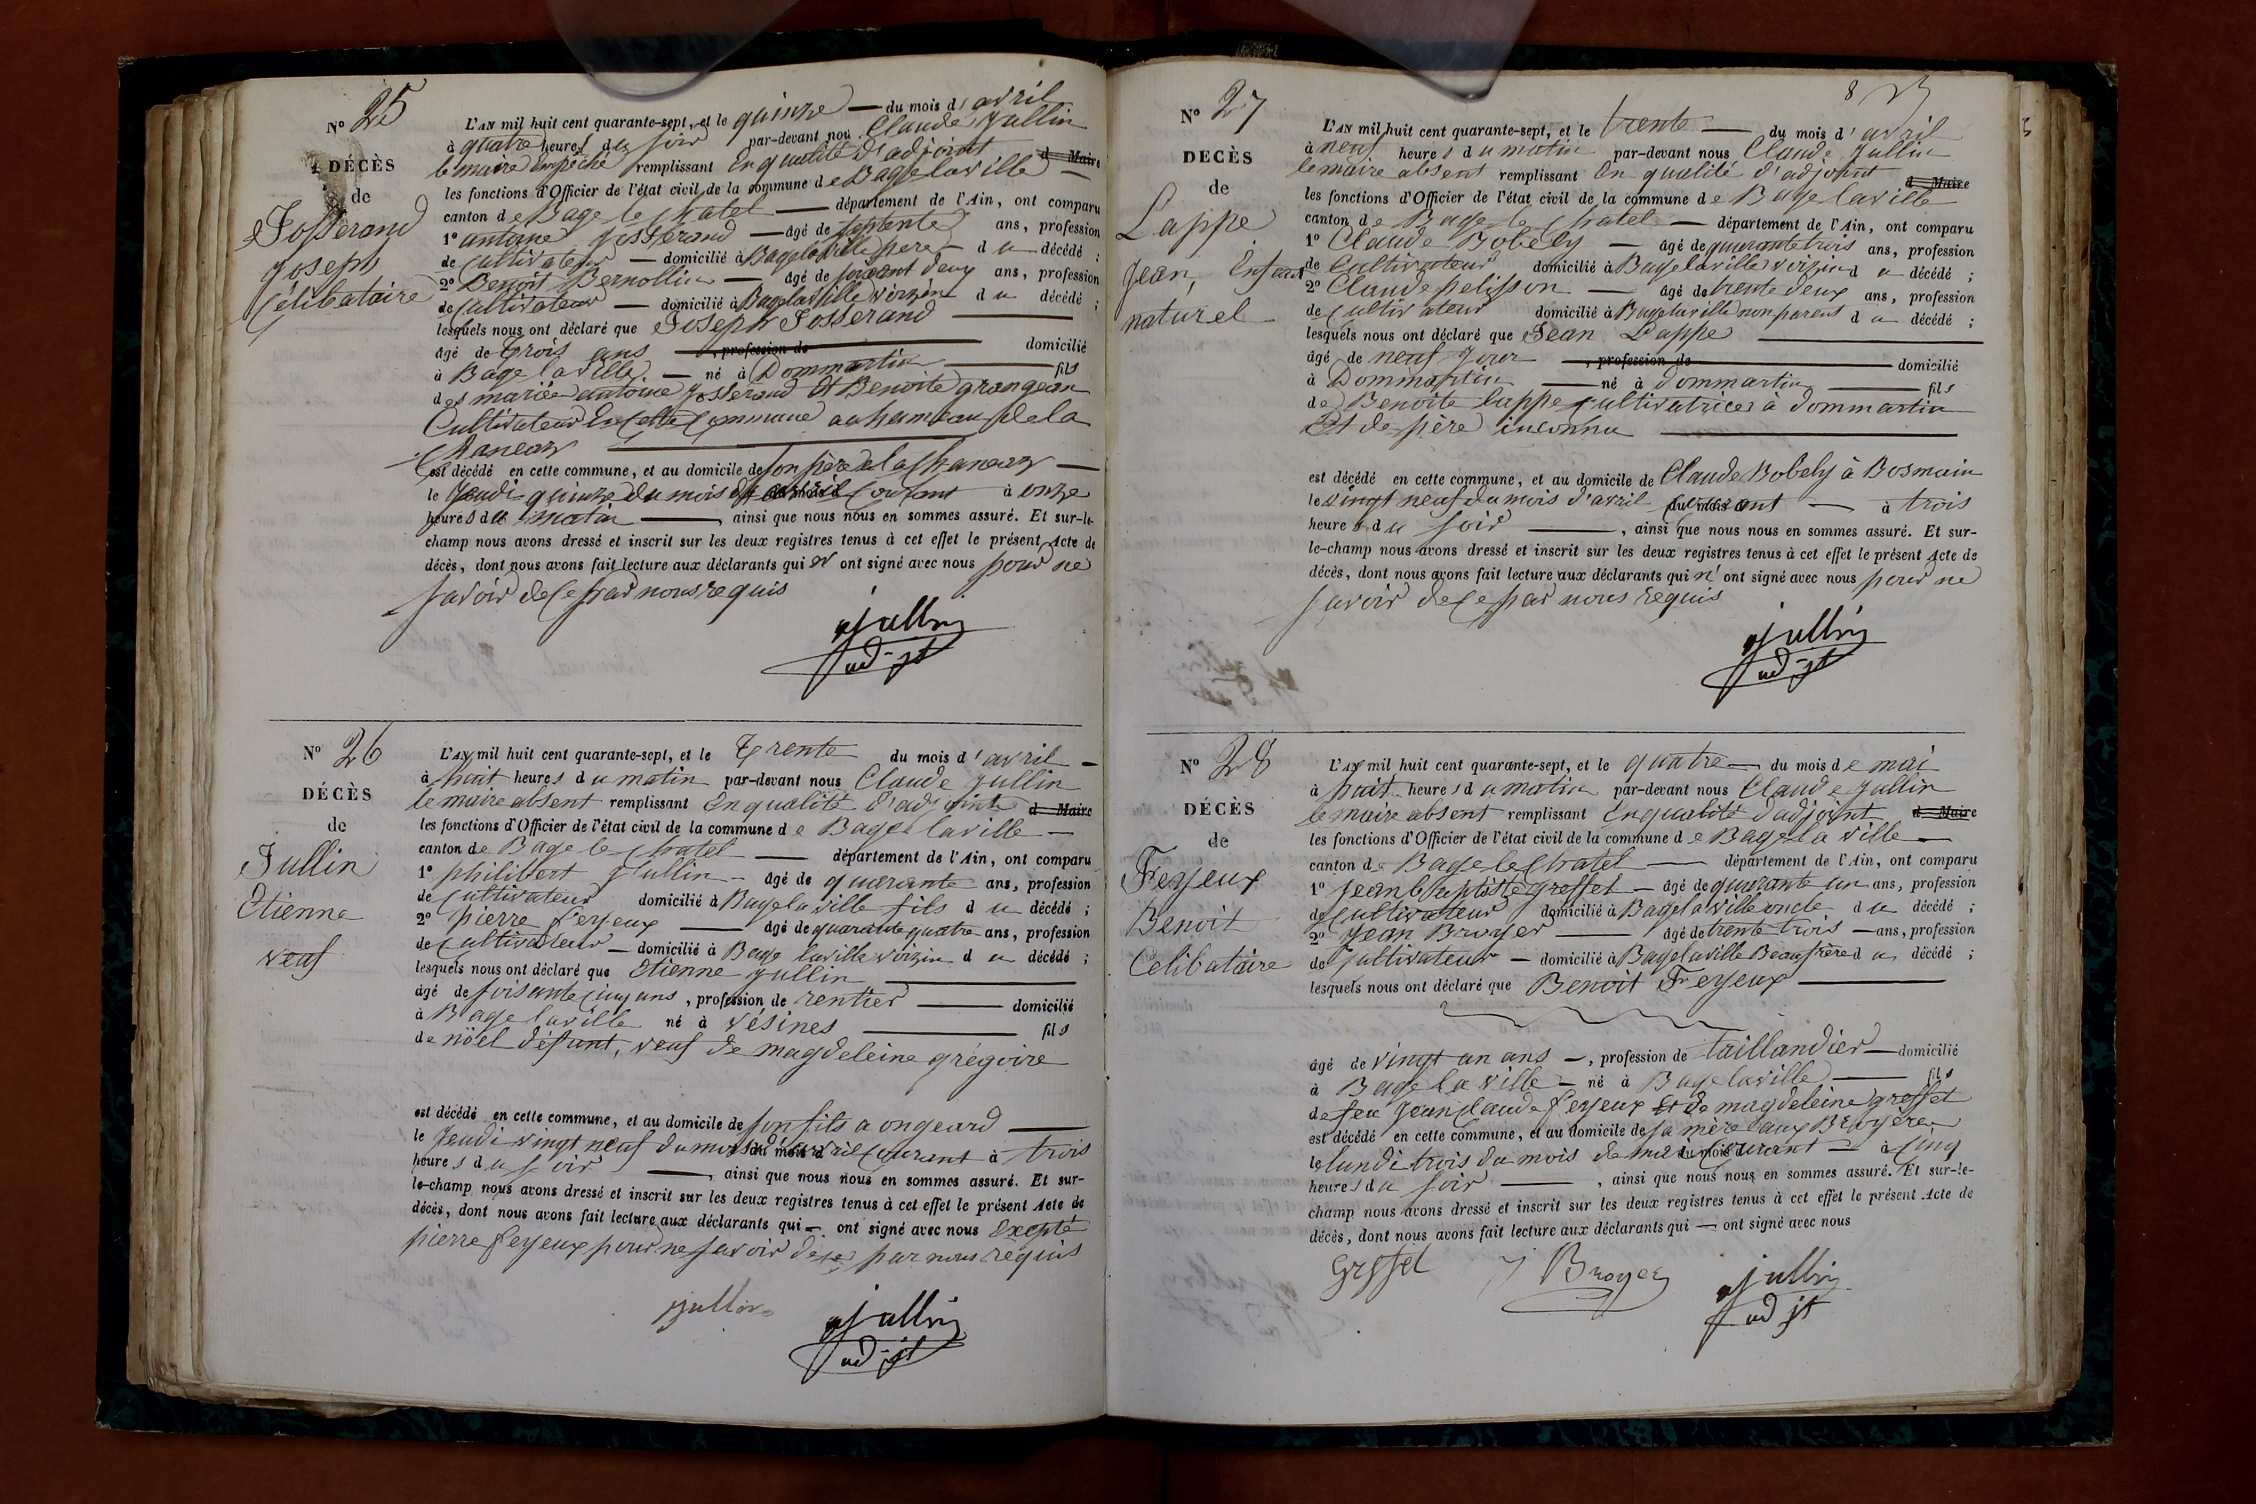 N° 25
DÉCÈS
de
Josserand
Joseph
Célibataire
L'AN mil huit cent quarante-sept, et le quinze — du mois d'avril
à quatre heures du soir par-devant nous Claude Jullin
le maire empêché remplissant En qualité d'adjoint d Maire
les fonctions d'Officier de l'état civil de la commune de Bagé laville —
canton de Bage le chatel — département de l'Ain, ont comparu
1° antoine josserand — âgé de septente ans, profession
de Cultivateur — domicilié à Bagelaville pere — du décédé ;
2° Benoit Bernollin — âgé de soixant deux ans, profession
de Cultivateur — domicilié à Bagelaville voizin du décédé ;
lesquels nous ont déclaré que Joseph Josserand
âgé de trois ans , profession de domicilié
à Bage laville — né à Dommartin — fils
des mariée antoine josserand Et Benoite grangean
Cultivateur En cette Commune au hameau de la
Chanean
est décédé en cette commune, et au domicile de son père a la Chanean —
le Jeudi quinze du mois d'avril Courant à onze
heures du matin —, ainsi que nous nous en sommes assuré. Et sur-le-
champ nous avons dressé et inscrit sur les deux registres tenus à cet effet le présent Acte de
décès, dont nous avons fait lecture aux déclarants qui n' ont signé avec nous pour ne
savoir de ce par nous requis
Jullin
adjt
N° 26
DÉCÈS
de
Jullin
Etienne
veuf
L'AN mil huit cent quarante-sept, et le Trente du mois d'avril —
à huit heures du matin par-devant nous Claude Jullin
le maire absent remplissant En qualité d'adjoint d Maire
les fonctions d'Officier de l'état civil de la commune de Bage laville —
canton de Bage le chatel — département de l'Ain, ont comparu
1° philibert Jullin — âgé de quarante ans, profession
de Cultivateur domicilié à Bagelaville fils du décédé ;
2° pierre feyeux — âgé de quarante quatre ans, profession
de Cultivateur — domicilié à Bage laville voizin du décédé ;
lesquels nous ont déclaré que Etienne Jullin
âgé de soisante cinq ans, profession de rentier — domicilié
à Bage laville né à Vésines — fils
de nöel défunt, veuf de magdeleine grégoire
est décédé en cette commune, et au domicile de son fils a ongeard —
le Jeudi vingt neuf du mois d'avril Courant à trois
heures du soir —, ainsi que nous nous en sommes assuré. Et sur-
le-champ nous avons dressé et inscrit sur les deux registres tenus à cet effet le présent Acte de
décès, dont nous avons fait lecture aux déclarants qui — ont signé avec nous Excepté
pierre feyeux pour ne savoir de ce par nous requis
jullin
Jullin
adjt
8
N° 27
DECÈS
de
Lappe
Jean, Enfant
naturel
L'AN mil huit cent quarante-sept, et le trente — du mois d'avril
à neuf heures du matin par-devant nous Claude Jullin
le maire absent remplissant En qualité d'adjoint d Maire
les fonctions d'Officier de l'état civil de la commune de Bage laville
canton de Bage le chatel — département de l'Ain, ont comparu
1° Claude Bobely — âgé de quarante trois ans, profession
de Cultivateur domicilié à Bagelaville voizin du décédé ;
2° Claude pelisson — âgé de trente deux ans, profession
de Cultivateur domicilié à Bagelaville non parens du décédé ;
lesquels nous ont déclaré que Jean Lappe
âgé de neuf Jour , profession de domicilié
à Dommartin — né à Dommartin — fils
de Benoite lappe cultivatrice à dommartin
Et de père inconnu
est décédé en cette commune, et au domicile de Claude Bobely à Bosmain
le vingt neuf du mois d'avril courant — à trois
heures du soir —, ainsi que nous nous en sommes assuré. Et sur-
le-champ nous avons dressé et inscrit sur les deux registres tenus à cet effet le présent Acte de
décès, dont nous avons fait lecture aux déclarants qui n' ont signé avec nous pour ne
savoir de ce par nous requis
Jullin
adjt
N° 28
DÉCÈS
de
Feyeux
Benoit
Célibataire
L'AN mil huit cent quarante-sept, et le quatre — du mois de mai
à huit heures du matin par-devant nous Claude Jullin
le maire absent remplissant En qualité d'adjoint d Maire
les fonctions d'Officier de l'état civil de la commune de Bage la ville —
canton de Bage le Chatel — département de l'Ain, ont comparu
1° Jean Baptiste greffet — âgé de quarante un ans, profession
de Cultivateur domicilié à Bagelaville oncle du décédé ;
2° Jean Broyer — âgé de trente trois — ans, profession
de Cultivateur — domicilié à Bagelaville Beaufrère du décédé ;
lesquels nous ont déclaré que Benoit Feyeux
âgé de vingt un ans —, profession de taillandier — domicilié
à Bage la ville — né à Bagelaville — fils
de feu Jean Claude feyeux Et de magdeleine greffet
est décédé en cette commune, et au domicile de sa mère aux Bruyères
le lundi trois du mois de mai Courant — à Cinq
heures du soir —, ainsi que nous nous en sommes assuré. Et sur-le-
champ nous avons dressé et inscrit sur les deux registres tenus à cet effet le présent Acte de
décès, dont nous avons fait lecture aux déclarants qui — ont signé avec nous
Greffet J Broyer Jullin
adjt